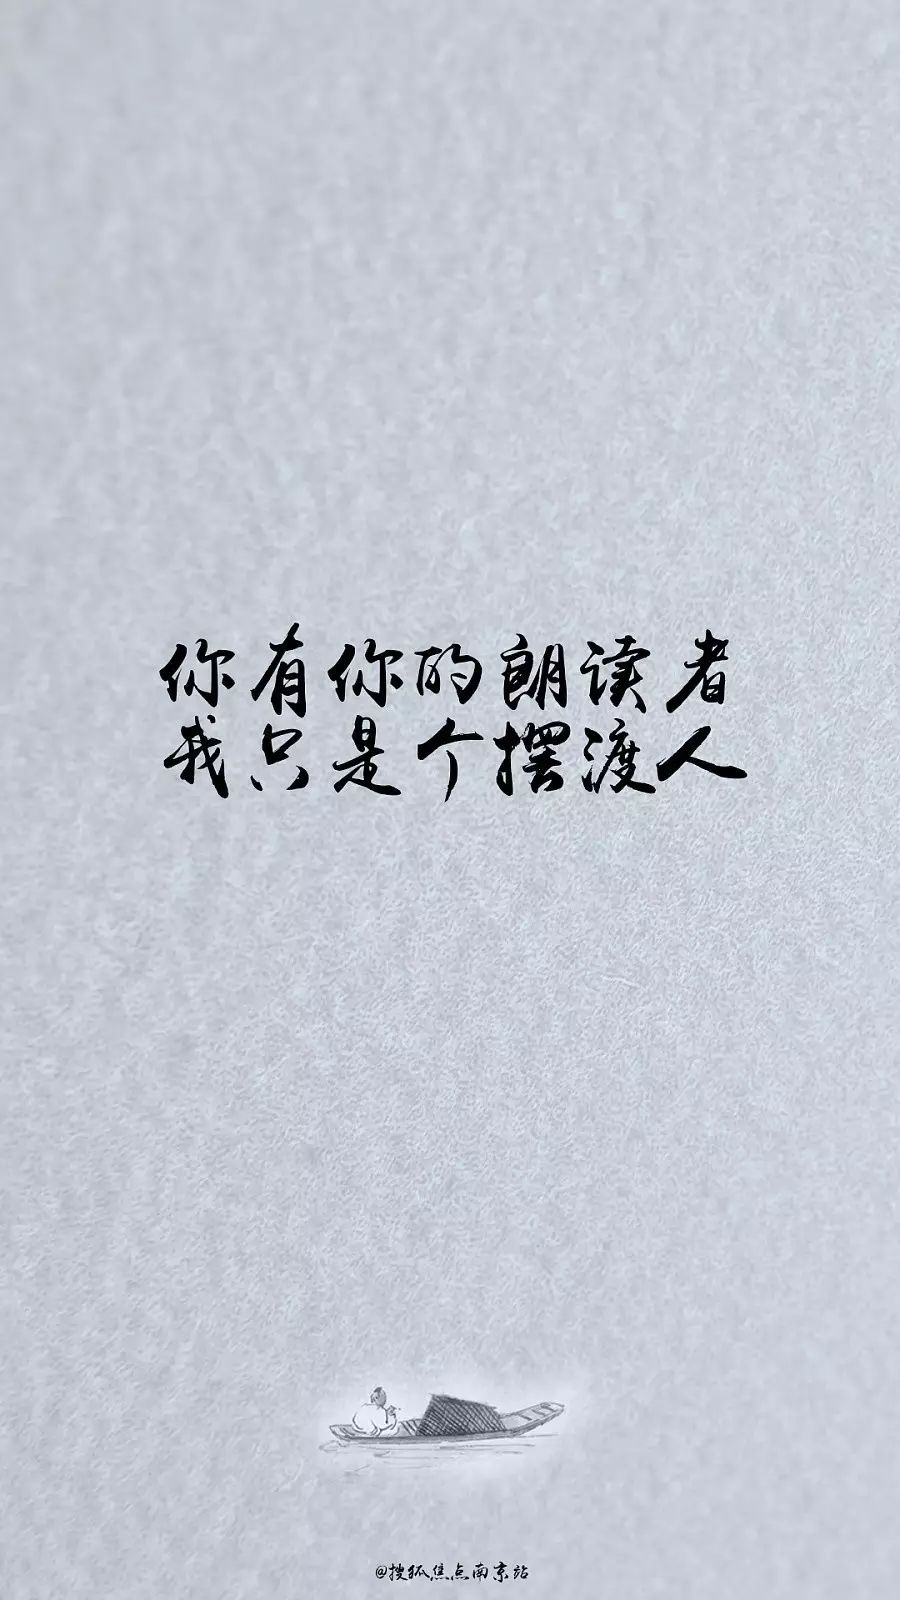 你有你的朗读者
我只是个摆渡人
@搜狐焦点南京站